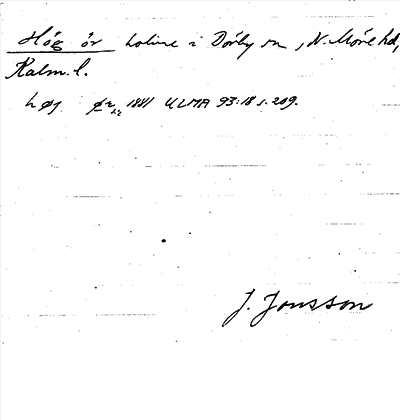 Hög ör holme i Dörby sn, N. Möre hd,
Kalm. l.
høg 1881 ULMA 93:18 s. 209.
J. Jonsson